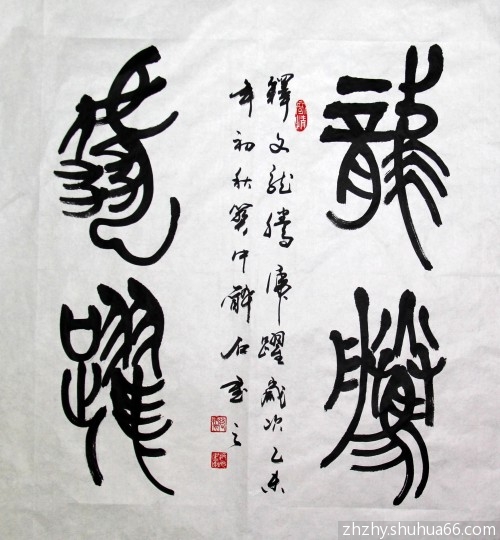 龍騰
釋文龍騰虎躍歲次乙未
年初秋癸中醉石書之
虎躍
zhzhy.shuhua66.com